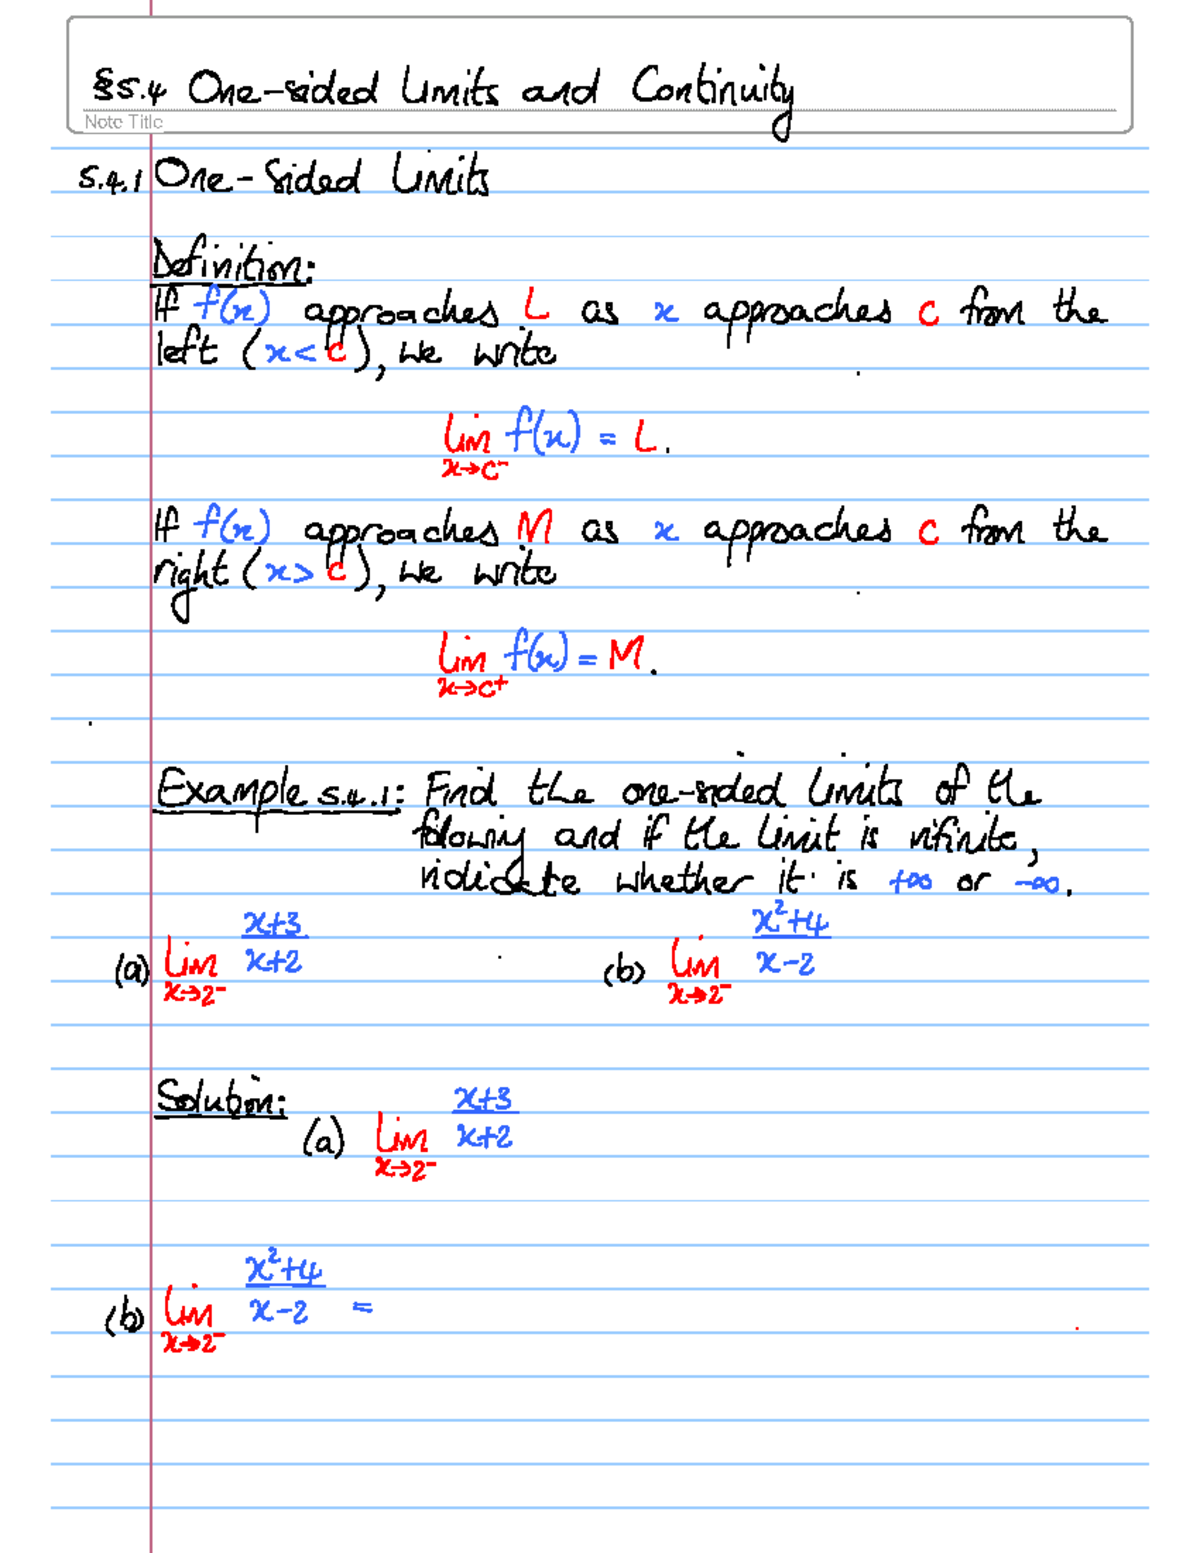 §5.4 One-sided Limits and Continuity
Note Title
5.4.1 One-Sided Limits
Definition:
If f(x) approaches L as x approaches c from the
left (x < c), we write
lim f(x) = L.
x→c⁻
If f(x) approaches M as x approaches c from the
right (x > c), we write
lim f(x) = M.
x→c⁺
Example 5.4.1: Find the one-sided limits of the
following and if the limit is infinite,
indicate whether it is +∞ or -∞.
(a) lim x→2⁻ (x+3)/(x+2) (b) lim x→2⁻ (x²+4)/(x-2)
Solution:
(a) lim x→2⁻ (x+3)/(x+2)
(b) lim x→2⁻ (x²+4)/(x-2) =